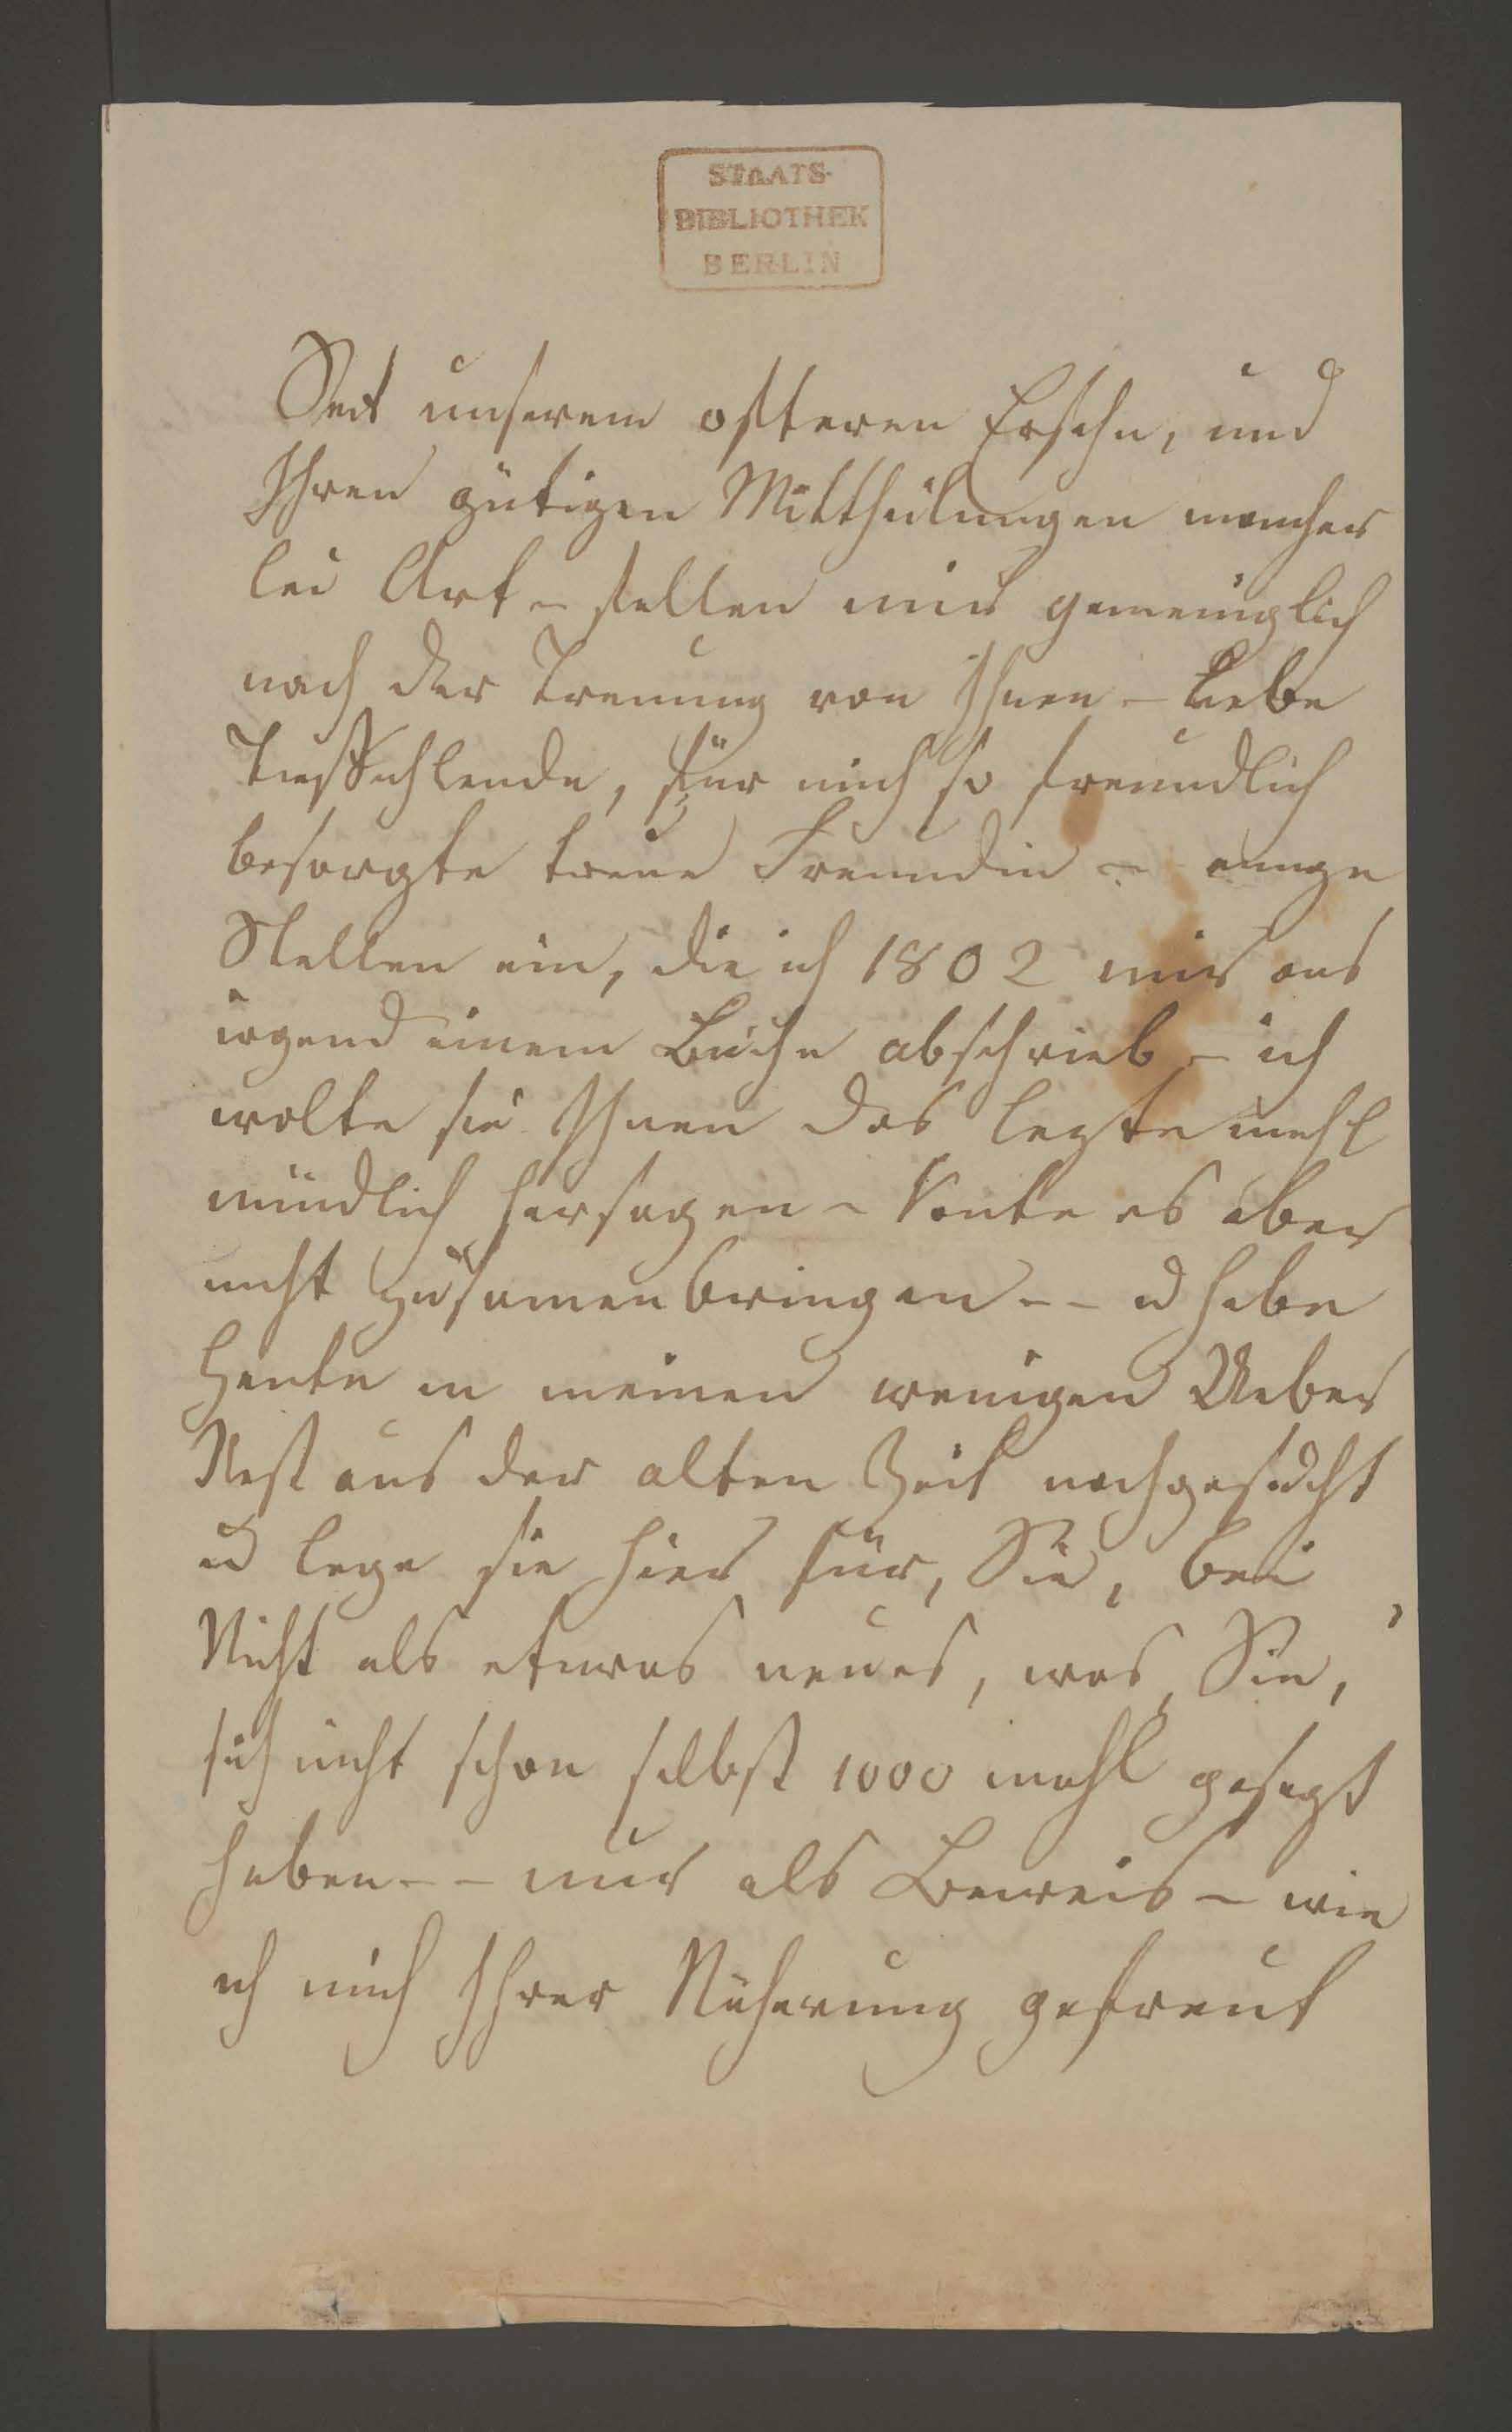 STAATS-
BIBLIOTHEK
BERLIN
Seit unserem ofteren Ersehn, und
Ihren gütigen Mittheilungen mancher
lei Art – stellen mir gemeiniglich
nach der Trenung von Ihnen – Liebe
Tieffuhlende, für mich so freundlich
besorgte treue Freundin – einige
Stellen ein, die ich 1802 mir aus
irgend einem Buche abschrieb – ich
wolte sie Ihnen das lezte mahl
mündlich hersagen – konte es aber
nicht zusamenbringen – – u habe
heute in meinen wenigen Ueber
Rest aus der alten Zeit nachgesucht
u lege sie hier für, Sie, bei
Nicht als etwas neues, was, Sie,
sich nicht schon selbst 1000 mahl gesagt
haben – – nur als Beweis – wie
ich mich Ihrer Näherung gefreut